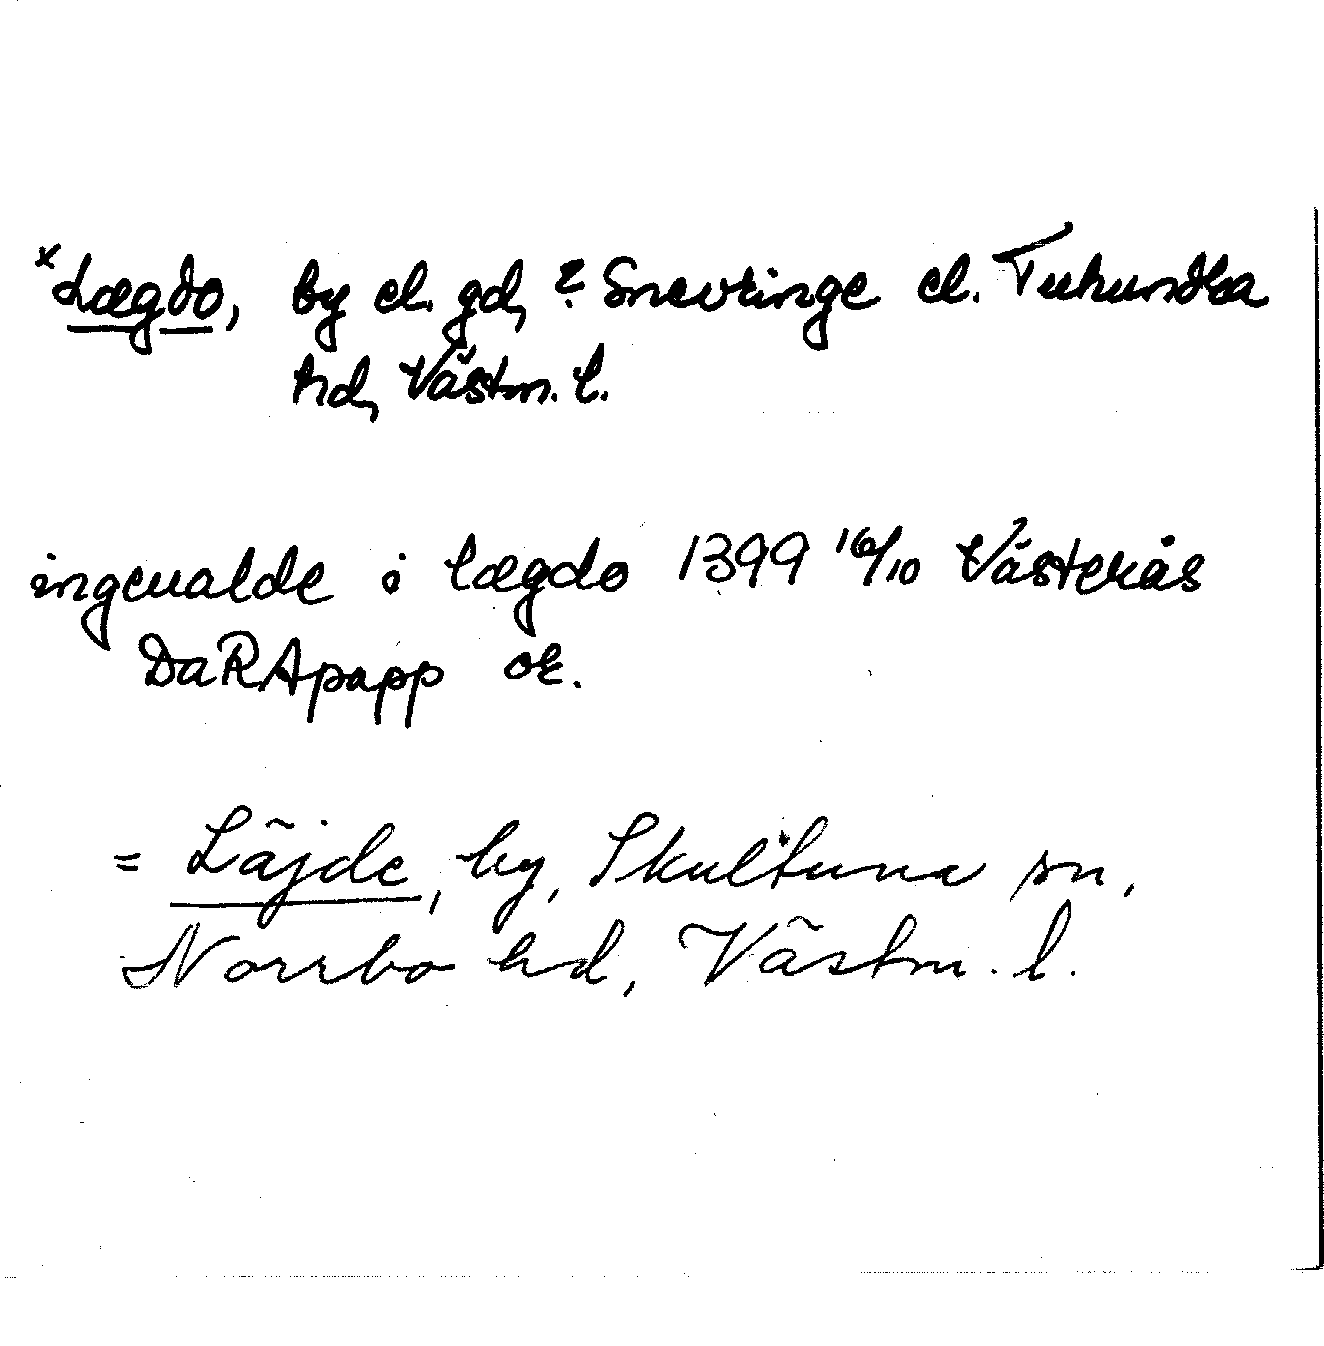 *Lægdo, by el. gd, ? Snevringe el. Tuhundra
hd, Västm. l.
ingeualde i lægdo 1399 16/10 Västerås
DaRApapp or.
= Läjde, by, Skultuna sn,
Norrbo hd, Västm. l.